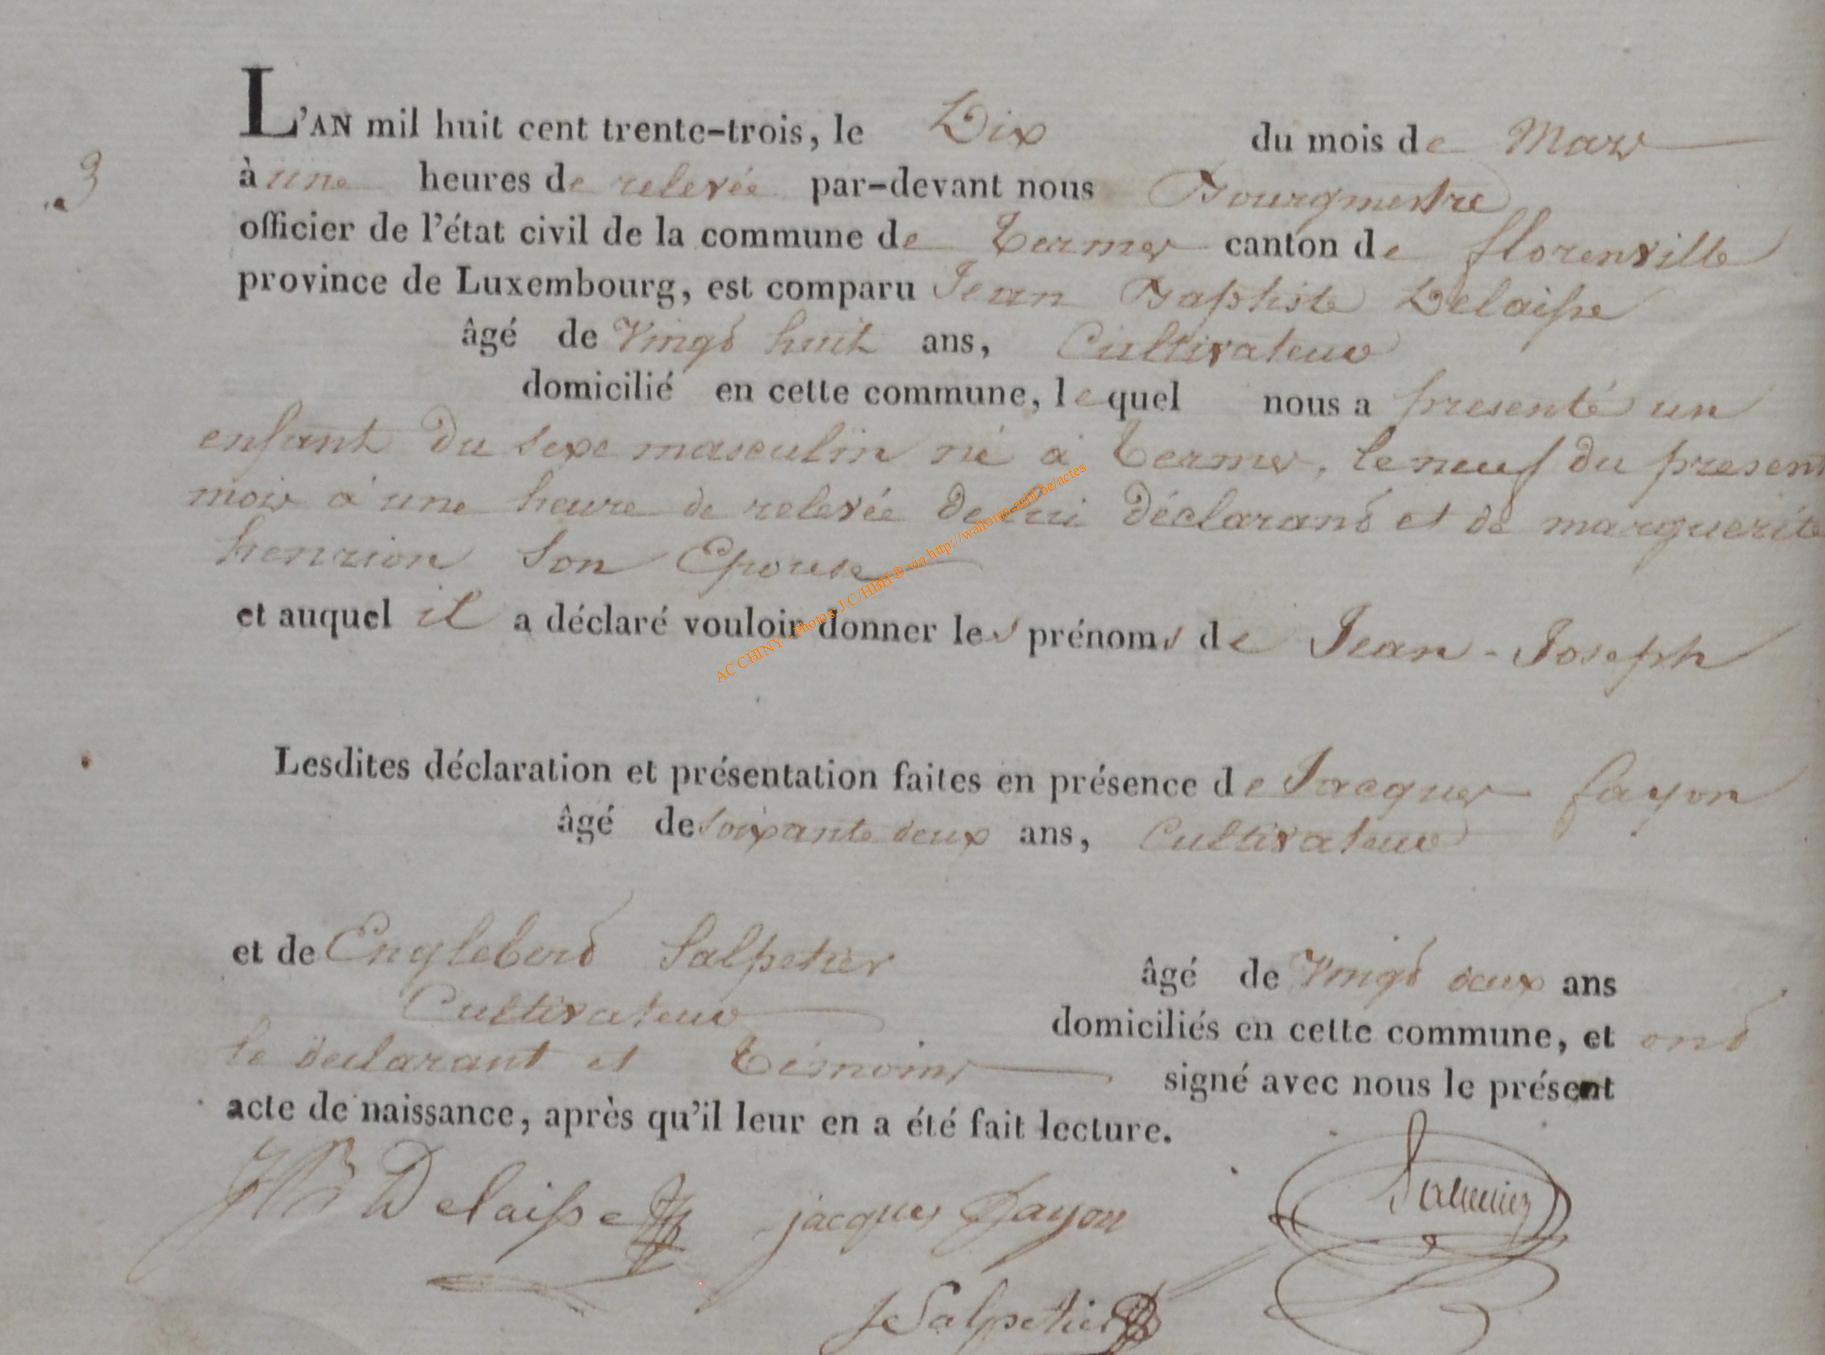 L'AN mil huit cent trente-trois, le Dix du mois de Mars
3
à une heures de relevée par-devant nous Bourgmestre
officier de l'état civil de la commune de Termes canton de florenville
province de Luxembourg, est comparu Jean Baptiste Delaisse
âgé de Vingt huit ans, Cultivateur
domicilié en cette commune, lequel nous a presenté un
enfant du sexe masculin né à Termes, le neuf du present
mois à une heure de relevée de lui déclarant et de marguerite
henrion son Epouse
et auquel il a déclaré vouloir donner les prénoms de Jean-Joseph
AC CHINY - Photos J.C/HDH B via http://wallonica.edhl.be/actes
Lesdites déclaration et présentation faites en présence de Jacques fayon
âgé de soixante deux ans, Cultivateur
et de Englebert Salpetier âgé de Vingt deux ans
Cultivateur domiciliés en cette commune, et ont
le declarant et Témoins signé avec nous le présent
acte de naissance, après qu'il leur en a été fait lecture.
JB Delaisse jacques fayon
Salpetier